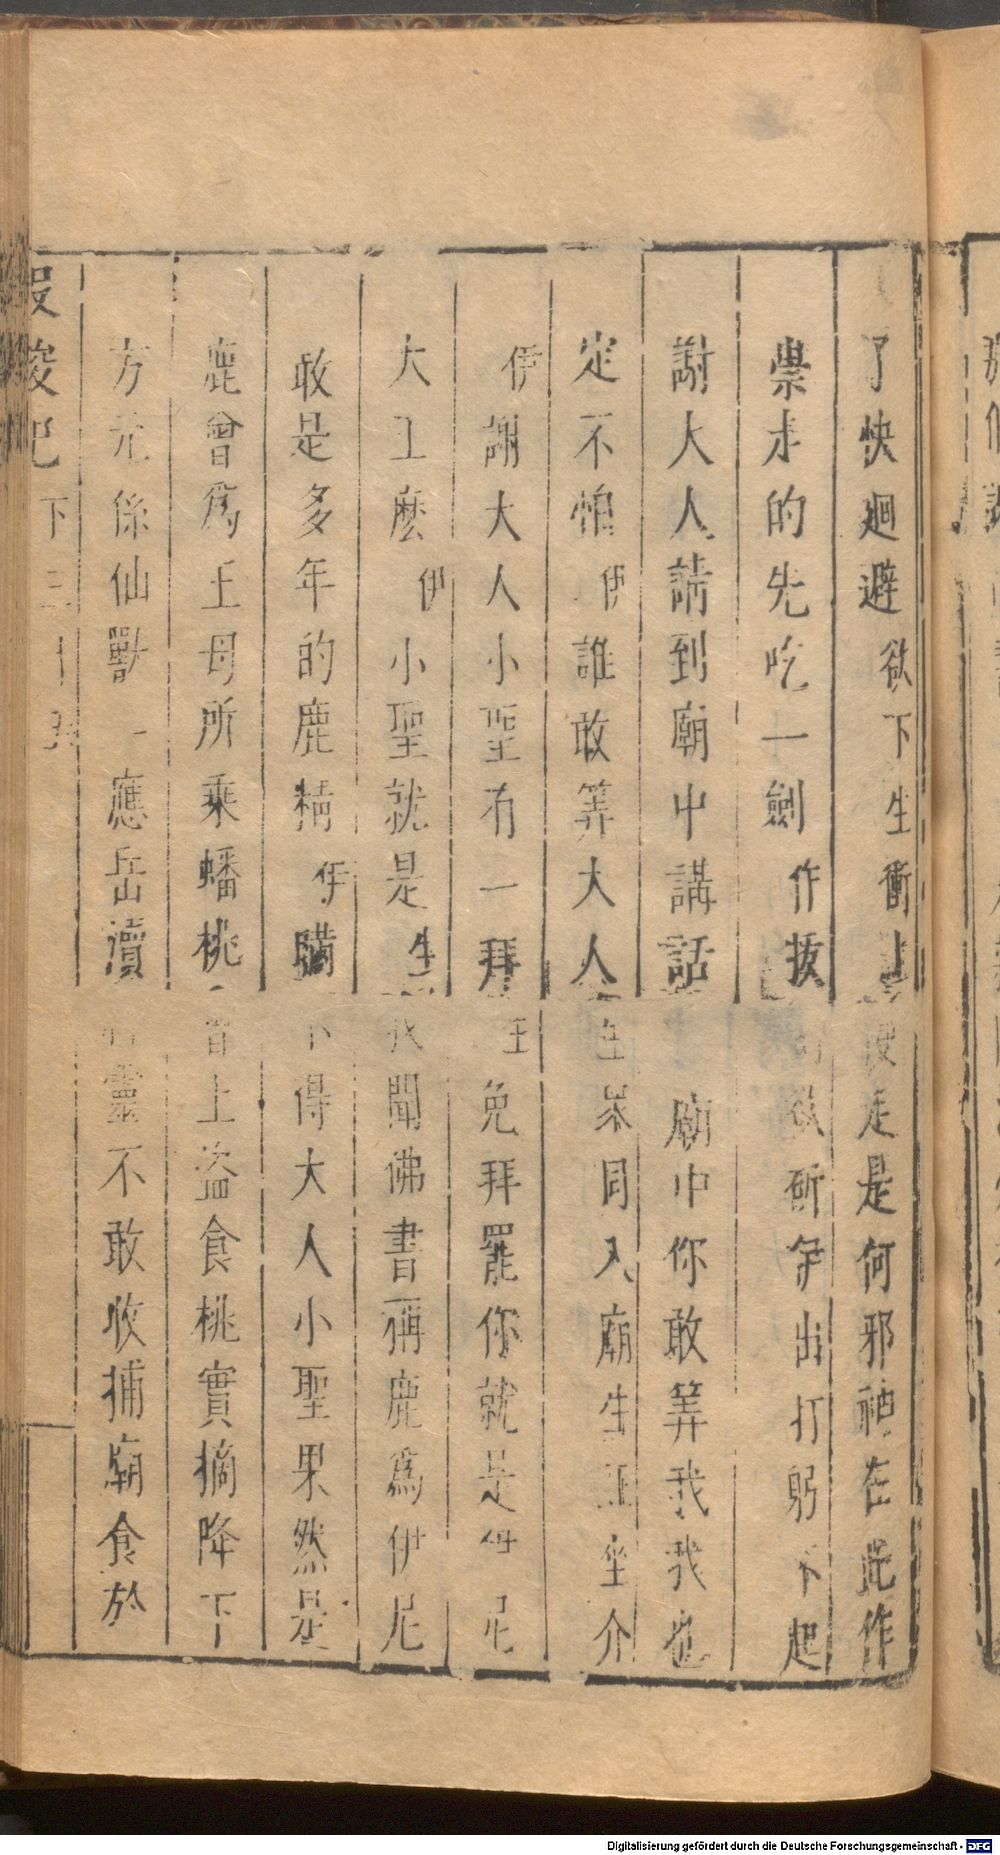 了快迴避欲下生衝上 是何邪神在此作
祟 的先吃一劍作拔 欲斫伊出打躬不起
謝大人請到廟中講話 廟中你敢筭我我也
定不怕 伊誰敢筭大人 同入廟生 坐介
伊謝大人小聖有一拜 生免拜罷你就是伊尼
大王麽 伊小聖就是 生我聞佛書稱鹿爲伊尼
敢是多年的鹿精 伊瞞不得大人小聖果然是
鹿曾爲王母所乘蟠桃會上盜食桃實摘降下
方 係仙獸一應岳瀆 靈不敢收捕廟食於
下 三十
Digitalisierung gefördert durch die Deutsche Forschungsgemeinschaft - DFG